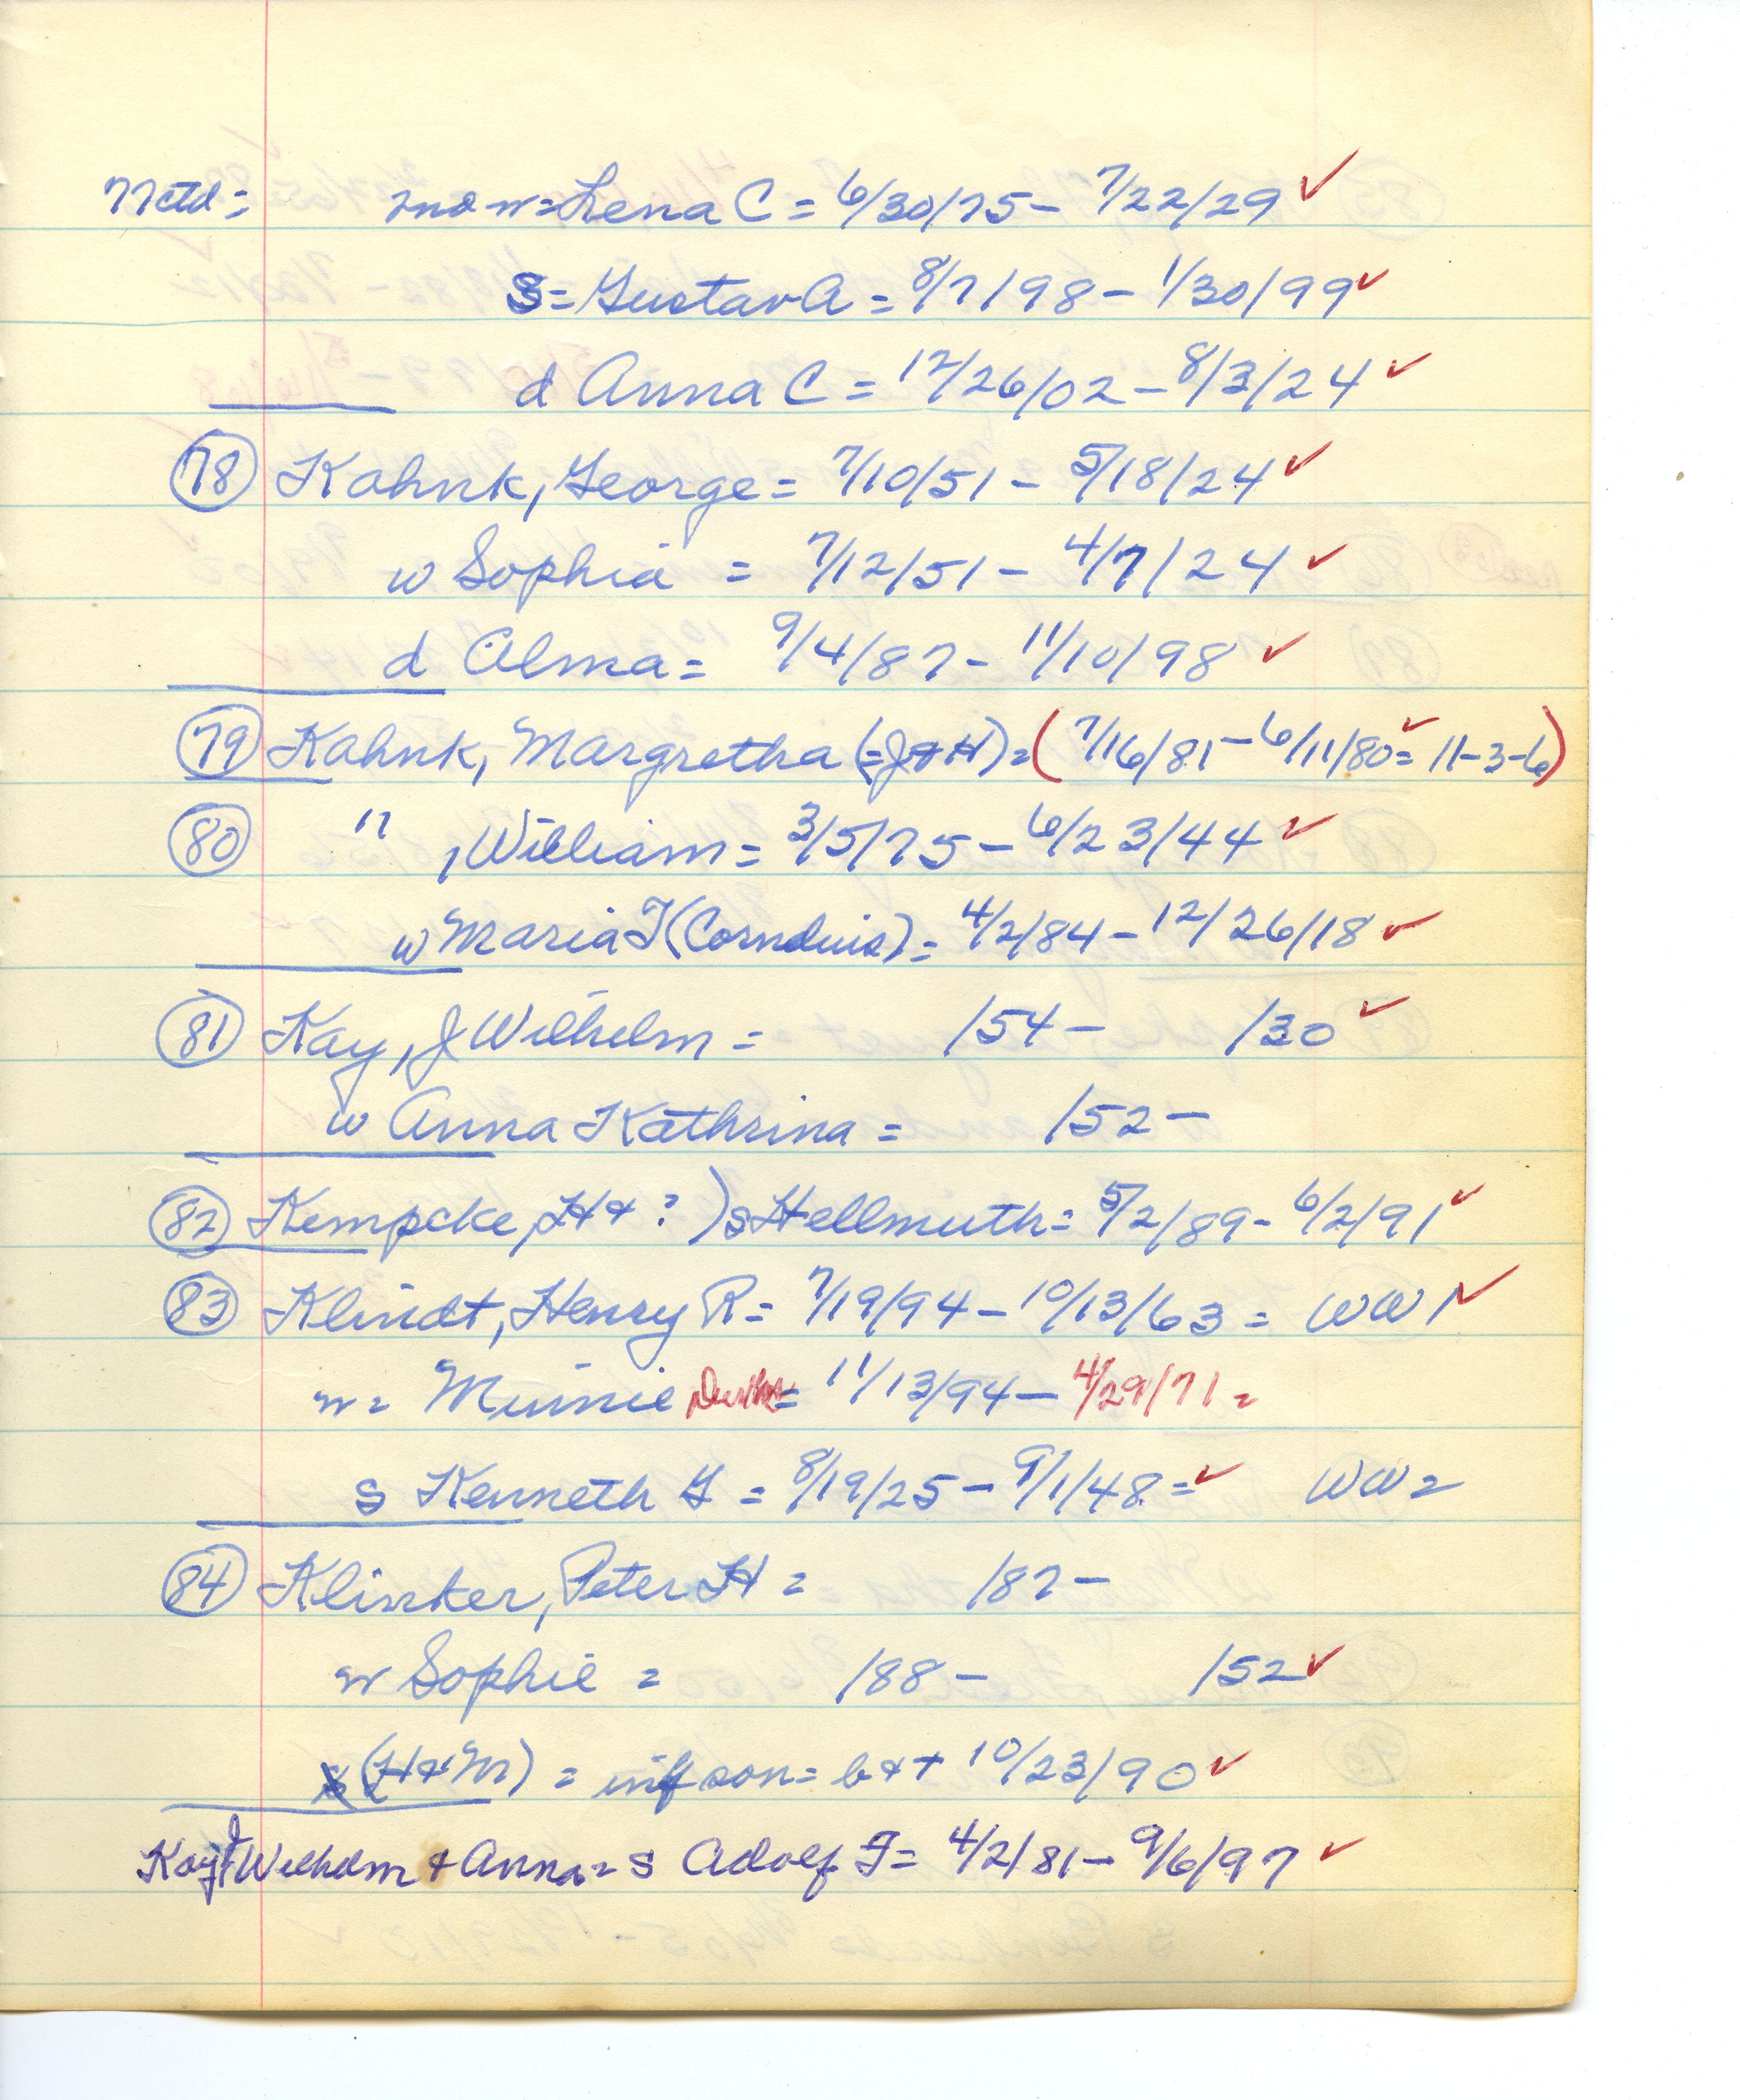 77ctd= 2nd w= Lena C = 6/30/75 - 7/22/29 ✓
S= Gustav A = 8/7/98 - 1/30/99 ✓
d Anna C = 12/26/02 - 8/3/24 ✓
78 Kahnk, George = 7/10/51 - 5/18/24 ✓
w Sophia = 7/12/51 - 4/7/24 ✓
d Alma = 9/4/87 - 11/10/98 ✓
79 Kahnk, Margretha (=J+H) = (7/16/81 - 6/11/80 ✓ = 11-3-6)
80 " , William = 3/5/75 - 6/23/44 ✓
w Maria T (Cornduis) = 4/2/84 - 12/26/18 ✓
81 Kay, J Wilhelm = /54 - /30 ✓
w Anna Kathrina = /52 -
82 Kempcke, H + ? ) s Hellmuth = 5/2/89 - 6/2/91 ✓
83 Klindt, Henry R = 7/19/94 - 10/13/63 = WW1 ✓
w = Minnie = 11/13/94 - 4/29/71 =
s Kenneth G = 8/19/25 - 9/1/48 = ✓ WW2
84 Klinker, Peter H = /87 -
w Sophie = /88 - /52 ✓
(H+M) = inf son = b + † 10/23/90 ✓
Kay, J Wilhelm + Anna = s Adolf F = 4/2/81 - 9/6/97 ✓